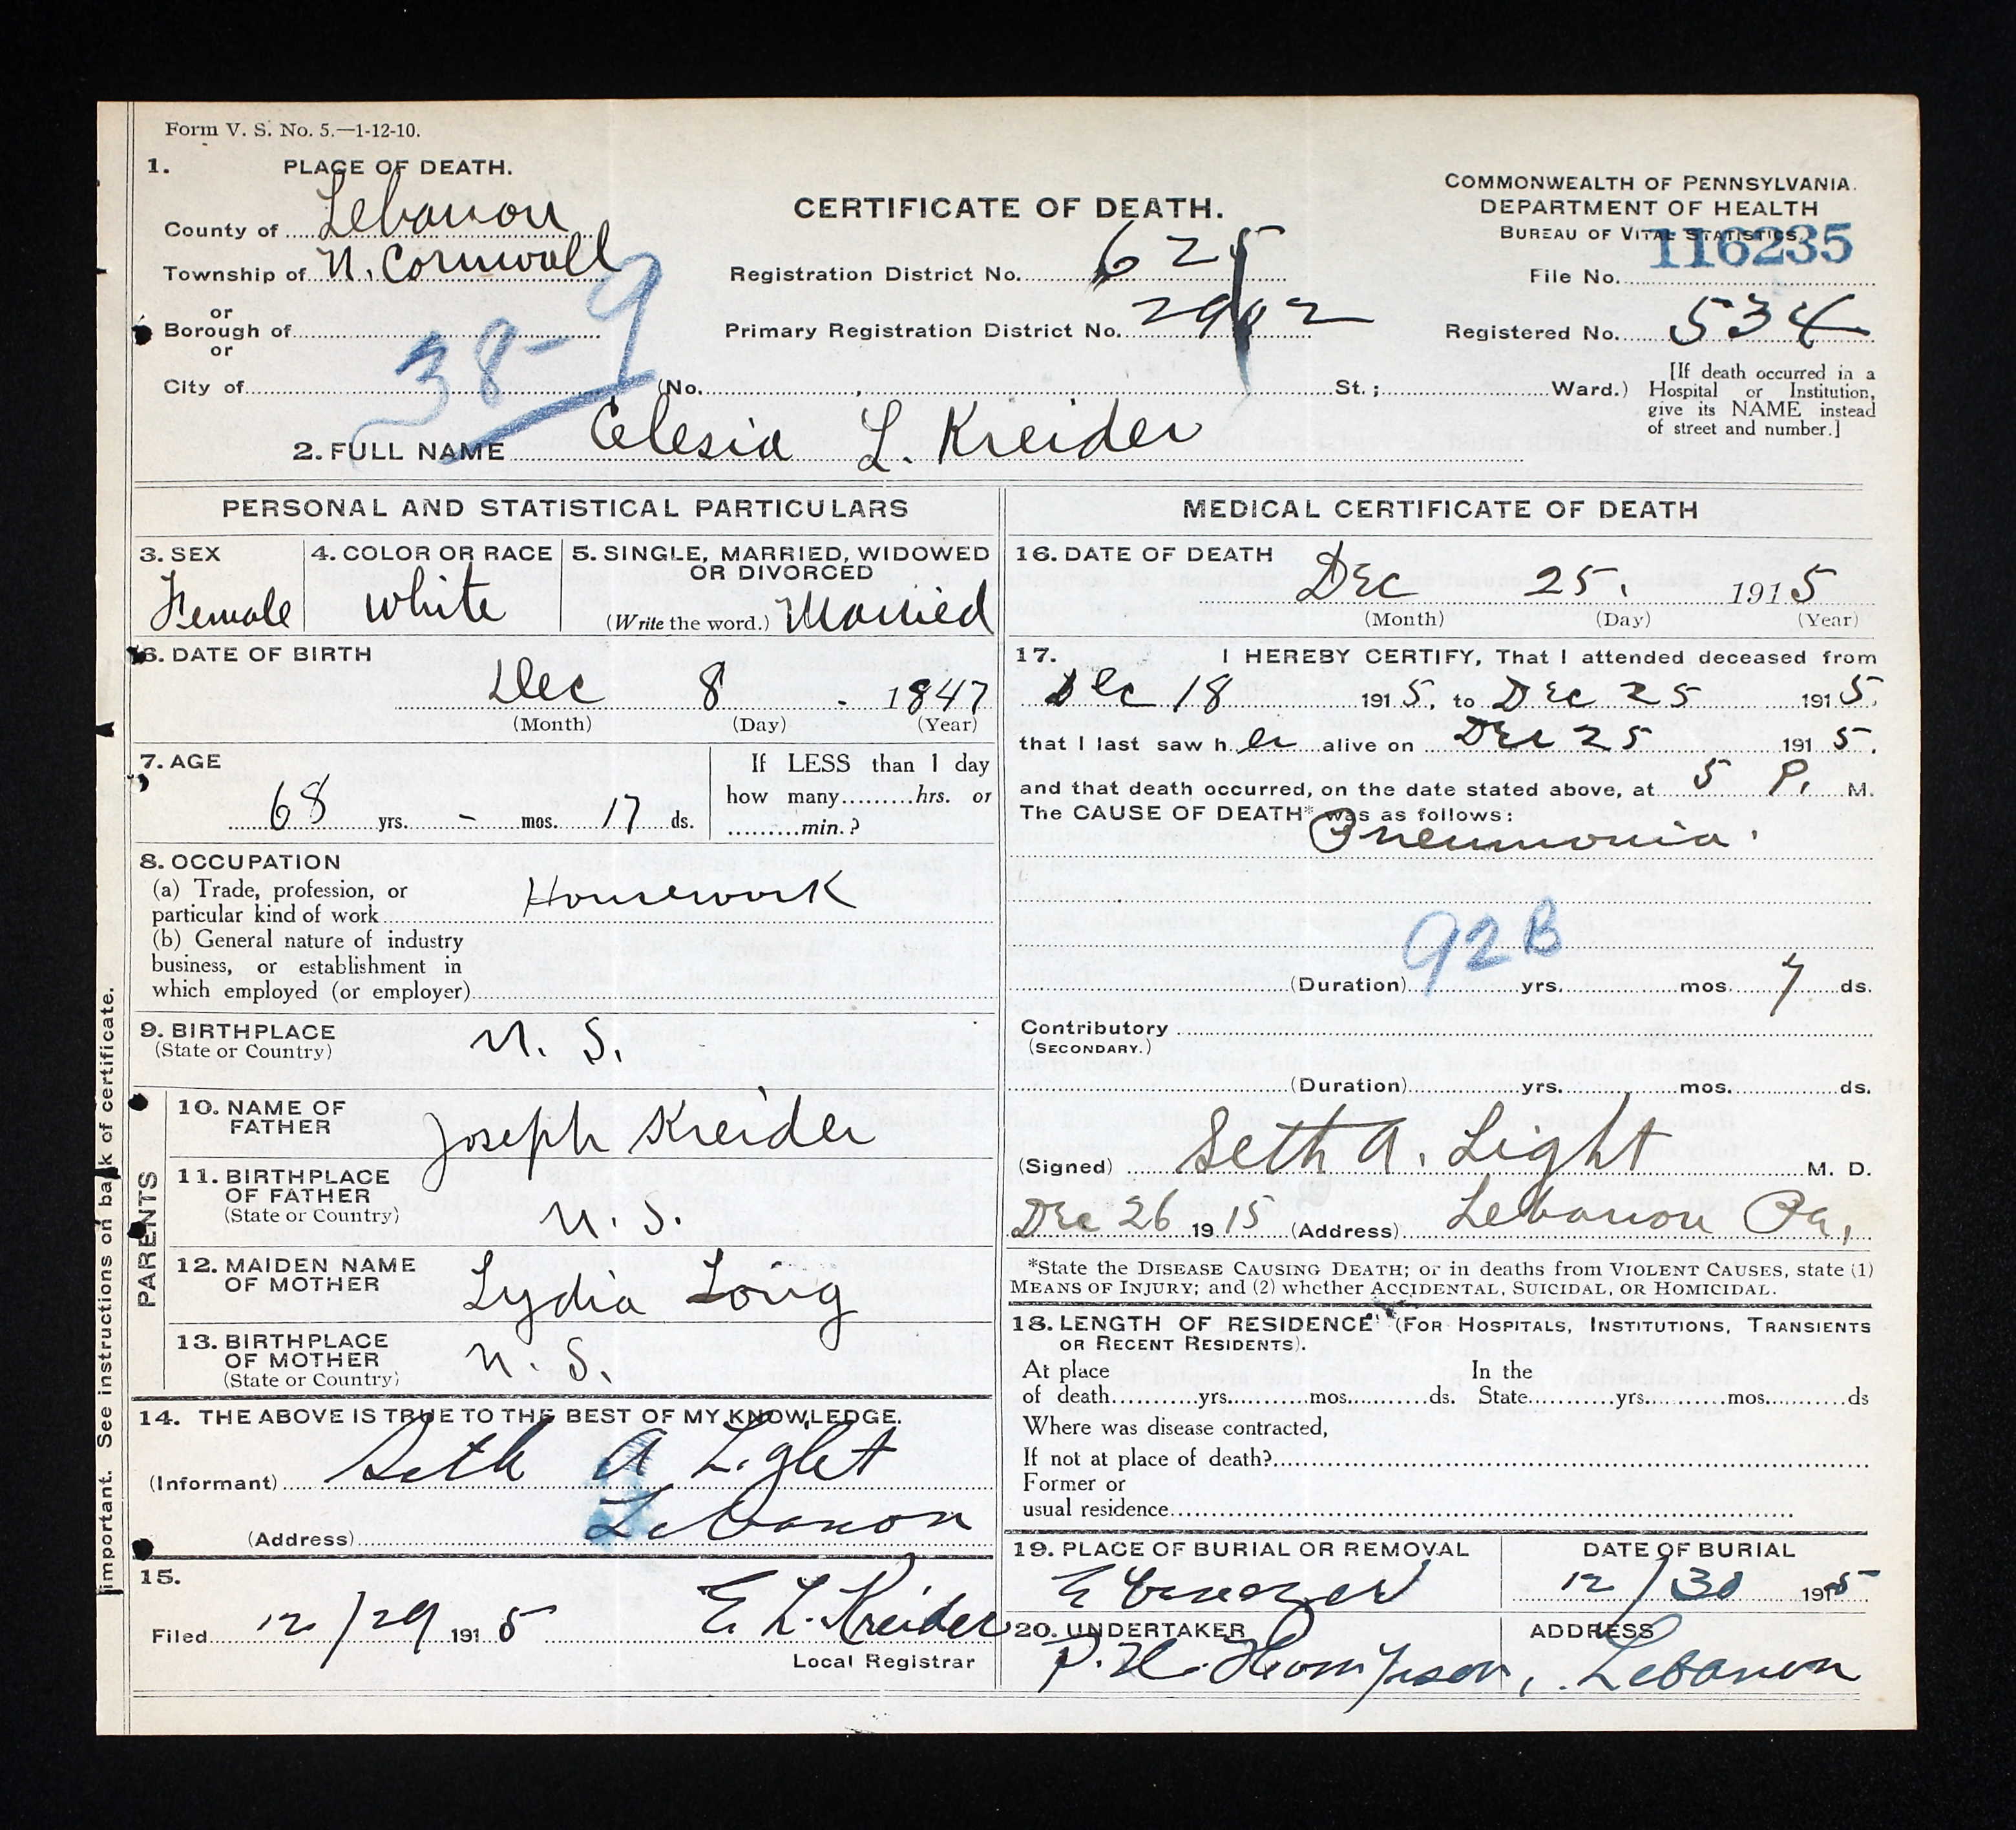 Form V. S. No. 5.—1-12-10.
1. PLACE OF DEATH.
County of Lebanon
Township of N. Cornwall
or
Borough of
or
City of (No. , St.; Ward.)
38-9
CERTIFICATE OF DEATH.
Registration District No. 625
Primary Registration District No. 2902
COMMONWEALTH OF PENNSYLVANIA.
DEPARTMENT OF HEALTH
BUREAU OF VITAL STATISTICS.
116235
File No.
Registered No. 534
[If death occurred in a
Hospital or Institution,
give its NAME instead
of street and number.]
2. FULL NAME Elesia L. Kreider
PERSONAL AND STATISTICAL PARTICULARS
3. SEX
Female
4. COLOR OR RACE
White
5. SINGLE, MARRIED, WIDOWED
OR DIVORCED
(Write the word.) Married
6. DATE OF BIRTH
Dec 8 1847
(Month) (Day) (Year)
7. AGE
68 yrs. - mos. 17 ds.
If LESS than 1 day
how many hrs. or
min.?
8. OCCUPATION
(a) Trade, profession, or
particular kind of work Housework
(b) General nature of industry
business, or establishment in
which employed (or employer)
9. BIRTHPLACE
(State or Country)
U. S.
PARENTS
10. NAME OF
FATHER
Joseph Kreider
11. BIRTHPLACE
OF FATHER
(State or Country)
U. S.
12. MAIDEN NAME
OF MOTHER
Lydia Long
13. BIRTHPLACE
OF MOTHER
(State or Country)
U. S.
14. THE ABOVE IS TRUE TO THE BEST OF MY KNOWLEDGE.
(Informant) Seth A Light
(Address) Lebanon
15.
Filed 12/29 1915 E. L. Kreider
Local Registrar
MEDICAL CERTIFICATE OF DEATH
16. DATE OF DEATH
Dec 25. 1915
(Month) (Day) (Year)
17. I HEREBY CERTIFY, That I attended deceased from
Dec 18 1915, to Dec 25 1915,
that I last saw her alive on Dec 25 1915.
and that death occurred, on the date stated above, at 5 P. M.
The CAUSE OF DEATH* was as follows:
Pneumonia.
92B
(Duration) yrs. mos. 7 ds.
Contributory
(SECONDARY.)
(Duration) yrs. mos. ds.
(Signed) Seth A. Light M. D.
Dec 26 1915 (Address) Lebanon Pa,
*State the DISEASE CAUSING DEATH; or in deaths from VIOLENT CAUSES, state (1)
MEANS OF INJURY; and (2) whether ACCIDENTAL, SUICIDAL, OR HOMICIDAL.
18. LENGTH OF RESIDENCE (FOR HOSPITALS, INSTITUTIONS, TRANSIENTS
OR RECENT RESIDENTS).
At place In the
of death yrs. mos. ds. State yrs. mos. ds
Where was disease contracted,
If not at place of death?
Former or
usual residence
19. PLACE OF BURIAL OR REMOVAL
Ebenezer
DATE OF BURIAL
12/30 1915
20. UNDERTAKER
P. H. Thompson,
ADDRESS
Lebanon
important. See instructions on back of certificate.